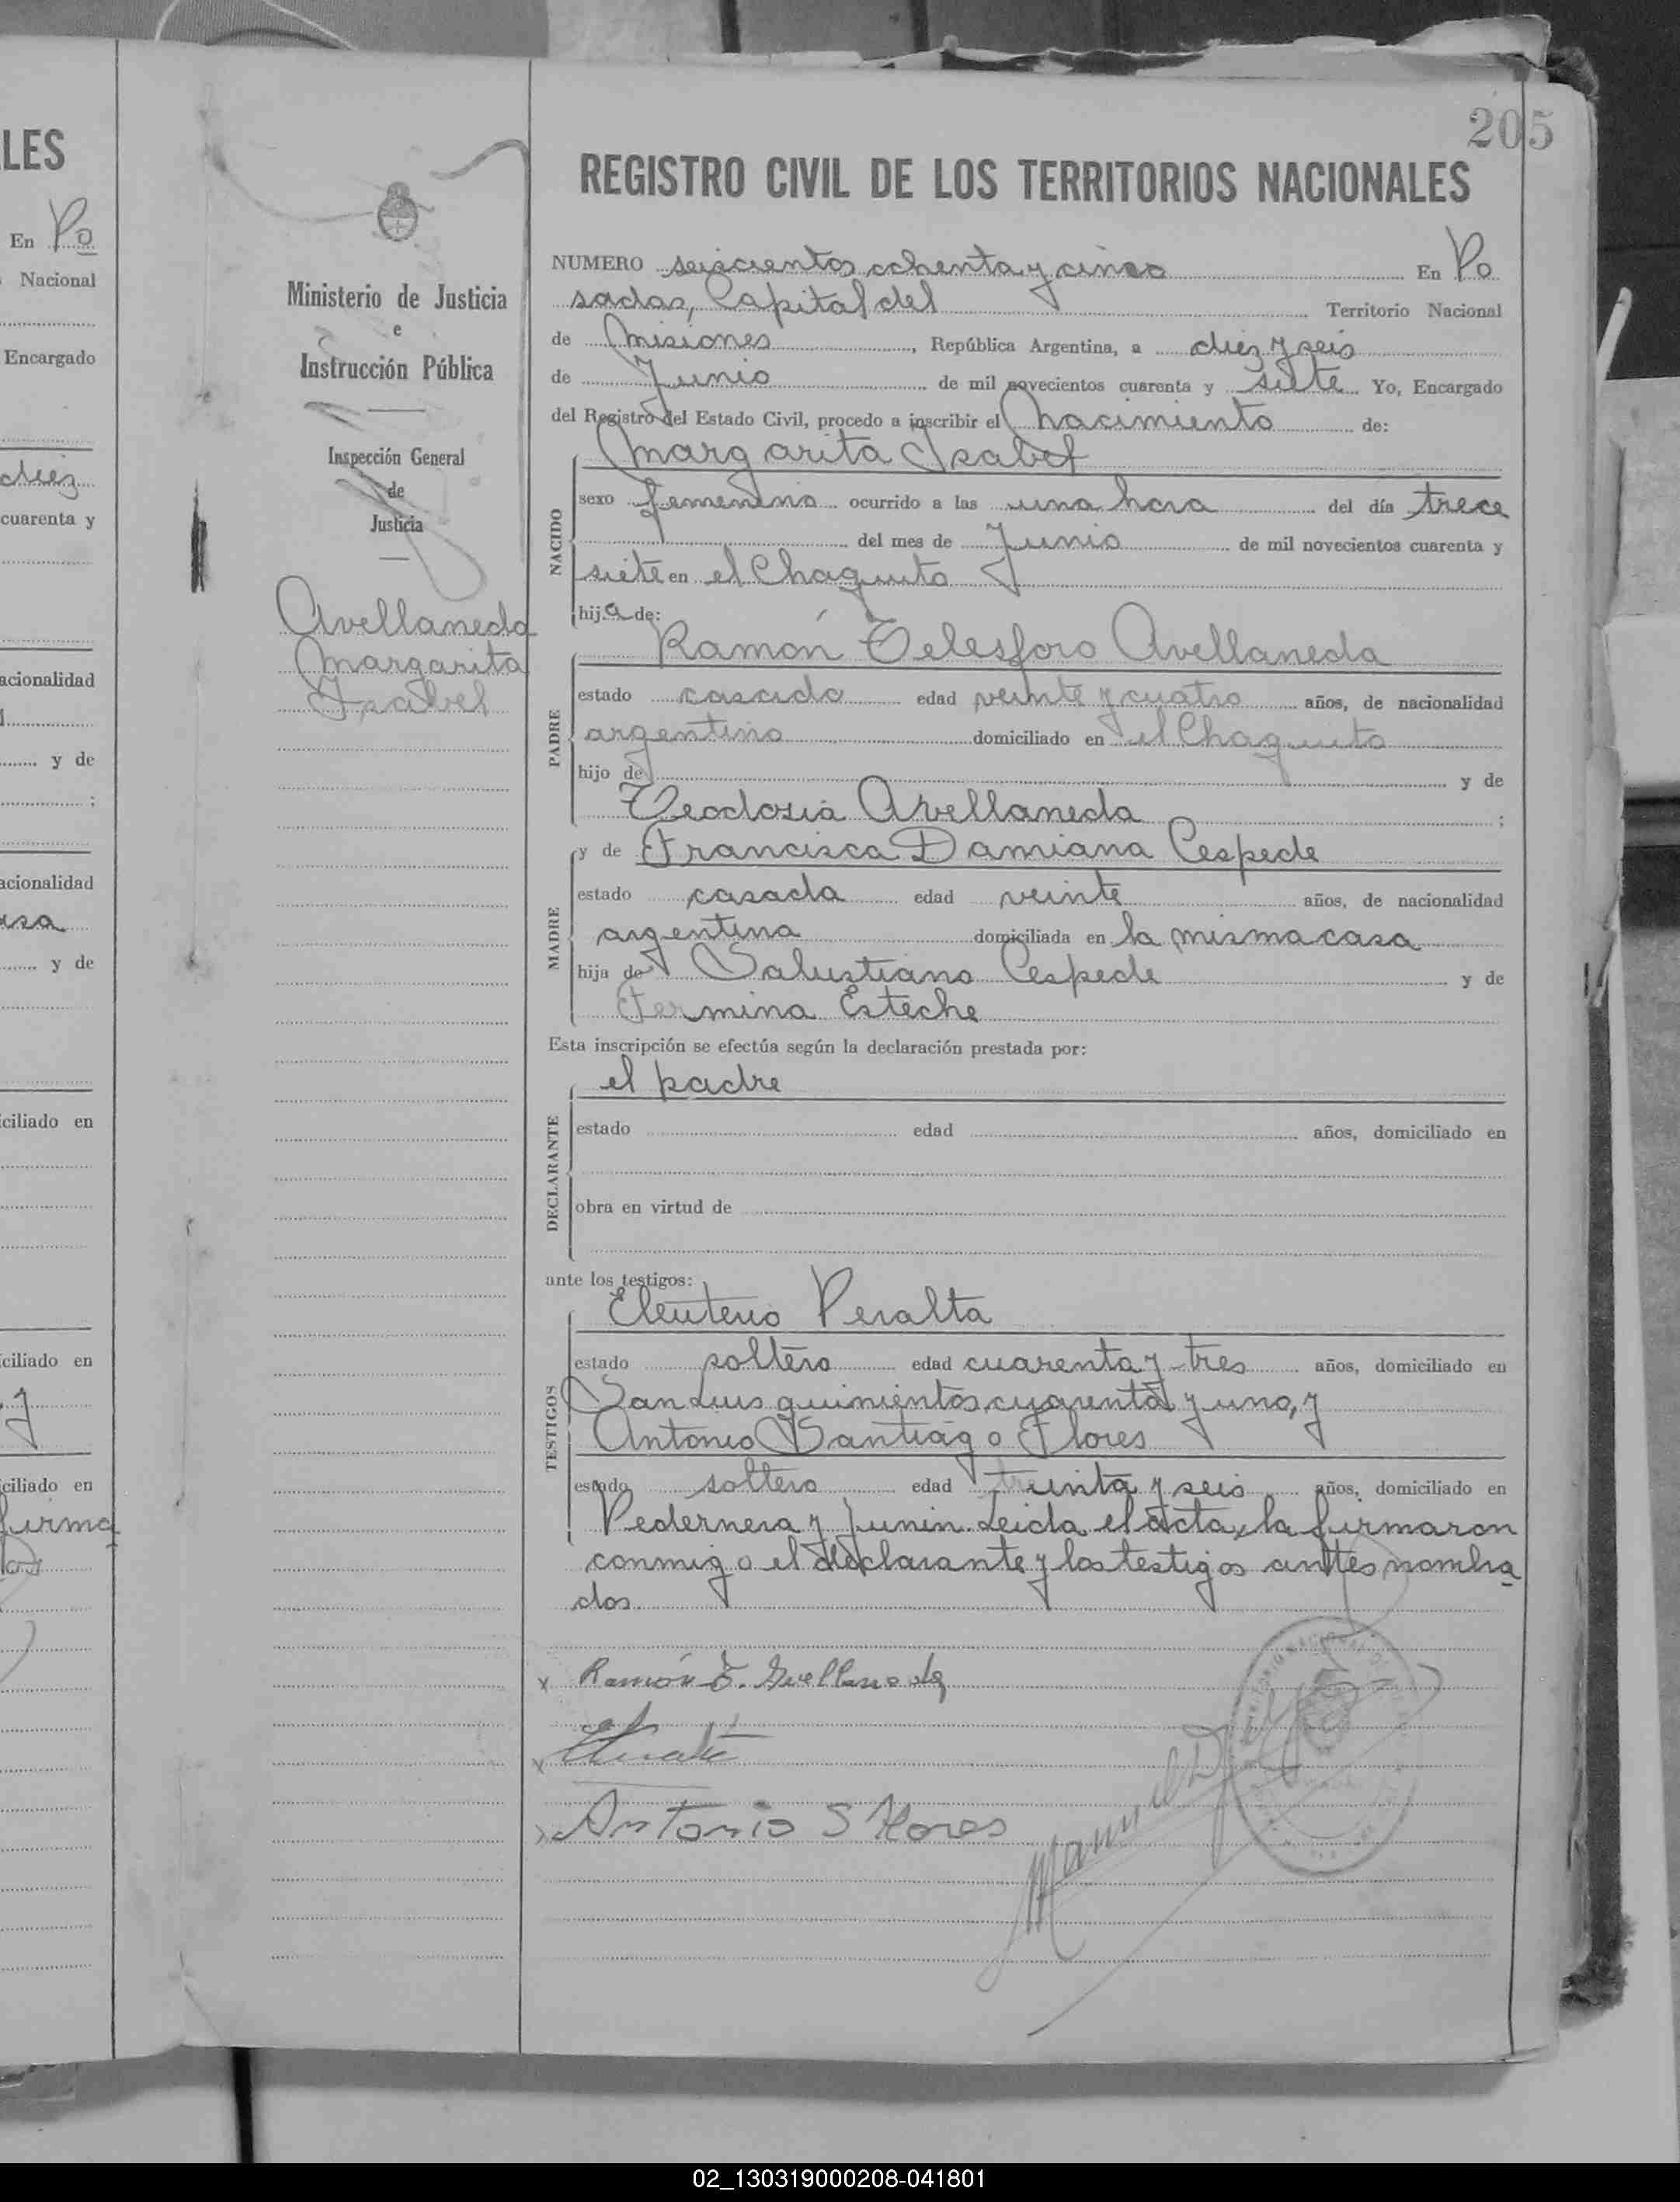 LES
En Po
Nacional
Encargado
diez
cuarenta y
acionalidad
y de
;
acionalidad
asa
y de
iciliado en
ciliado en
y
ciliado en
firma
205
Ministerio de Justicia
e
Instrucción Pública
Inspección General
de
Justicia
Avellaneda
Margarita
Isabel
REGISTRO CIVIL DE LOS TERRITORIOS NACIONALES
NUMERO seiscientos ochenta y cinco En Po
sadas, Capital del Territorio Nacional
de Misiones, República Argentina, a diez y seis
de Junio de mil novecientos cuarenta y siete Yo, Encargado
del Registro del Estado Civil, procedo a inscribir el nacimiento de:
NACIDO
Margarita Isabel
sexo femenino ocurrido a las una hora del día trece
del mes de Junio de mil novecientos cuarenta y
siete en el Chaquito
hija de:
PADRE
Ramón Telesforo Avellaneda
estado casado edad veinte y cuatro años, de nacionalidad
argentino domiciliado en el Chaquito
hijo de y de
Teodosia Avellaneda ;
MADRE
y de Francisca Damiana Cespede
estado casada edad veinte años, de nacionalidad
argentina domiciliada en la misma casa
hija de Salustiano Cespede y de
Fermina Esteche
Esta inscripción se efectúa según la declaración prestada por:
DECLARANTE
el padre
estado edad años, domiciliado en
obra en virtud de
ante los testigos:
TESTIGOS
Eleuterio Peralta
estado soltero edad cuarenta y tres años, domiciliado en
San Luis quinientos cuarenta y uno, y
Antonio Santiago Flores
estado soltero edad treinta y seis años, domiciliado en
Pedernera y Junin. Leida el acta, la firmaron
conmigo el declarante y los testigos antes nombra
dos.
x Ramón T. Avellaneda
x
x Antonio S Flores
Manuel
02_130319000208-041801